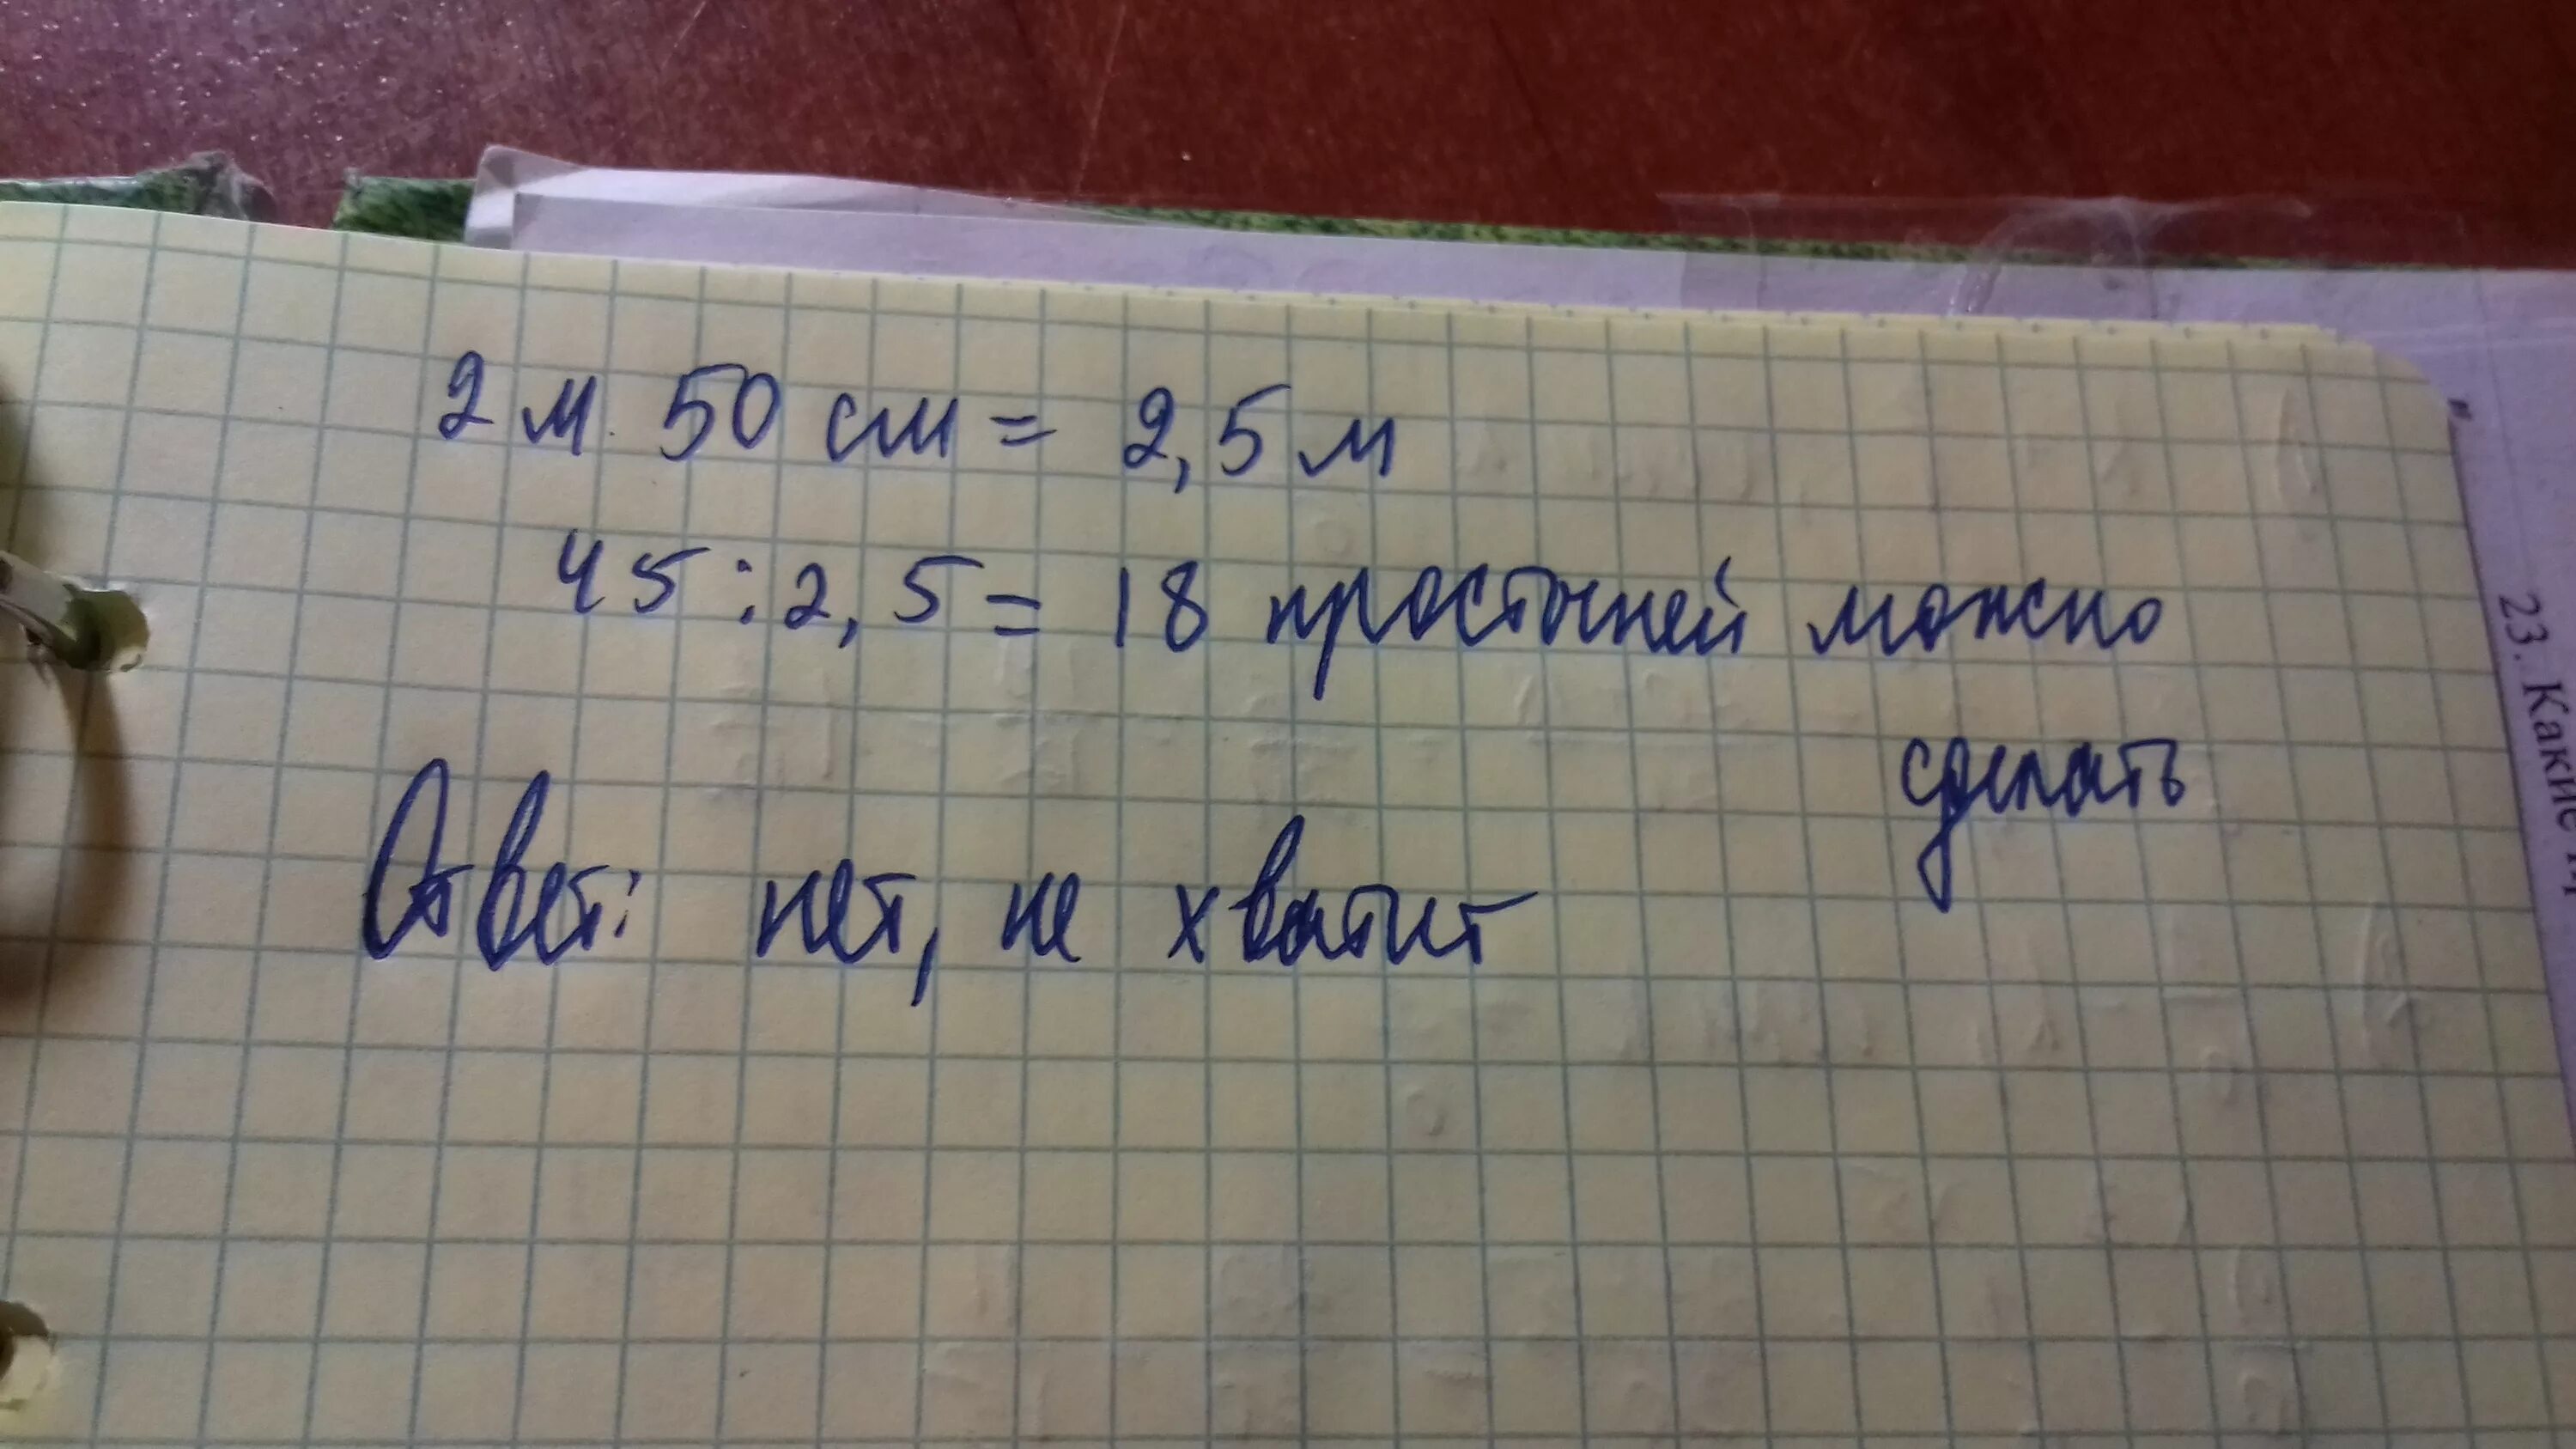 2 м 50 см = 2,5 м
45 : 2,5 = 18 простыней можно
сделать
Ответ: нет, не хватит
23. Какие